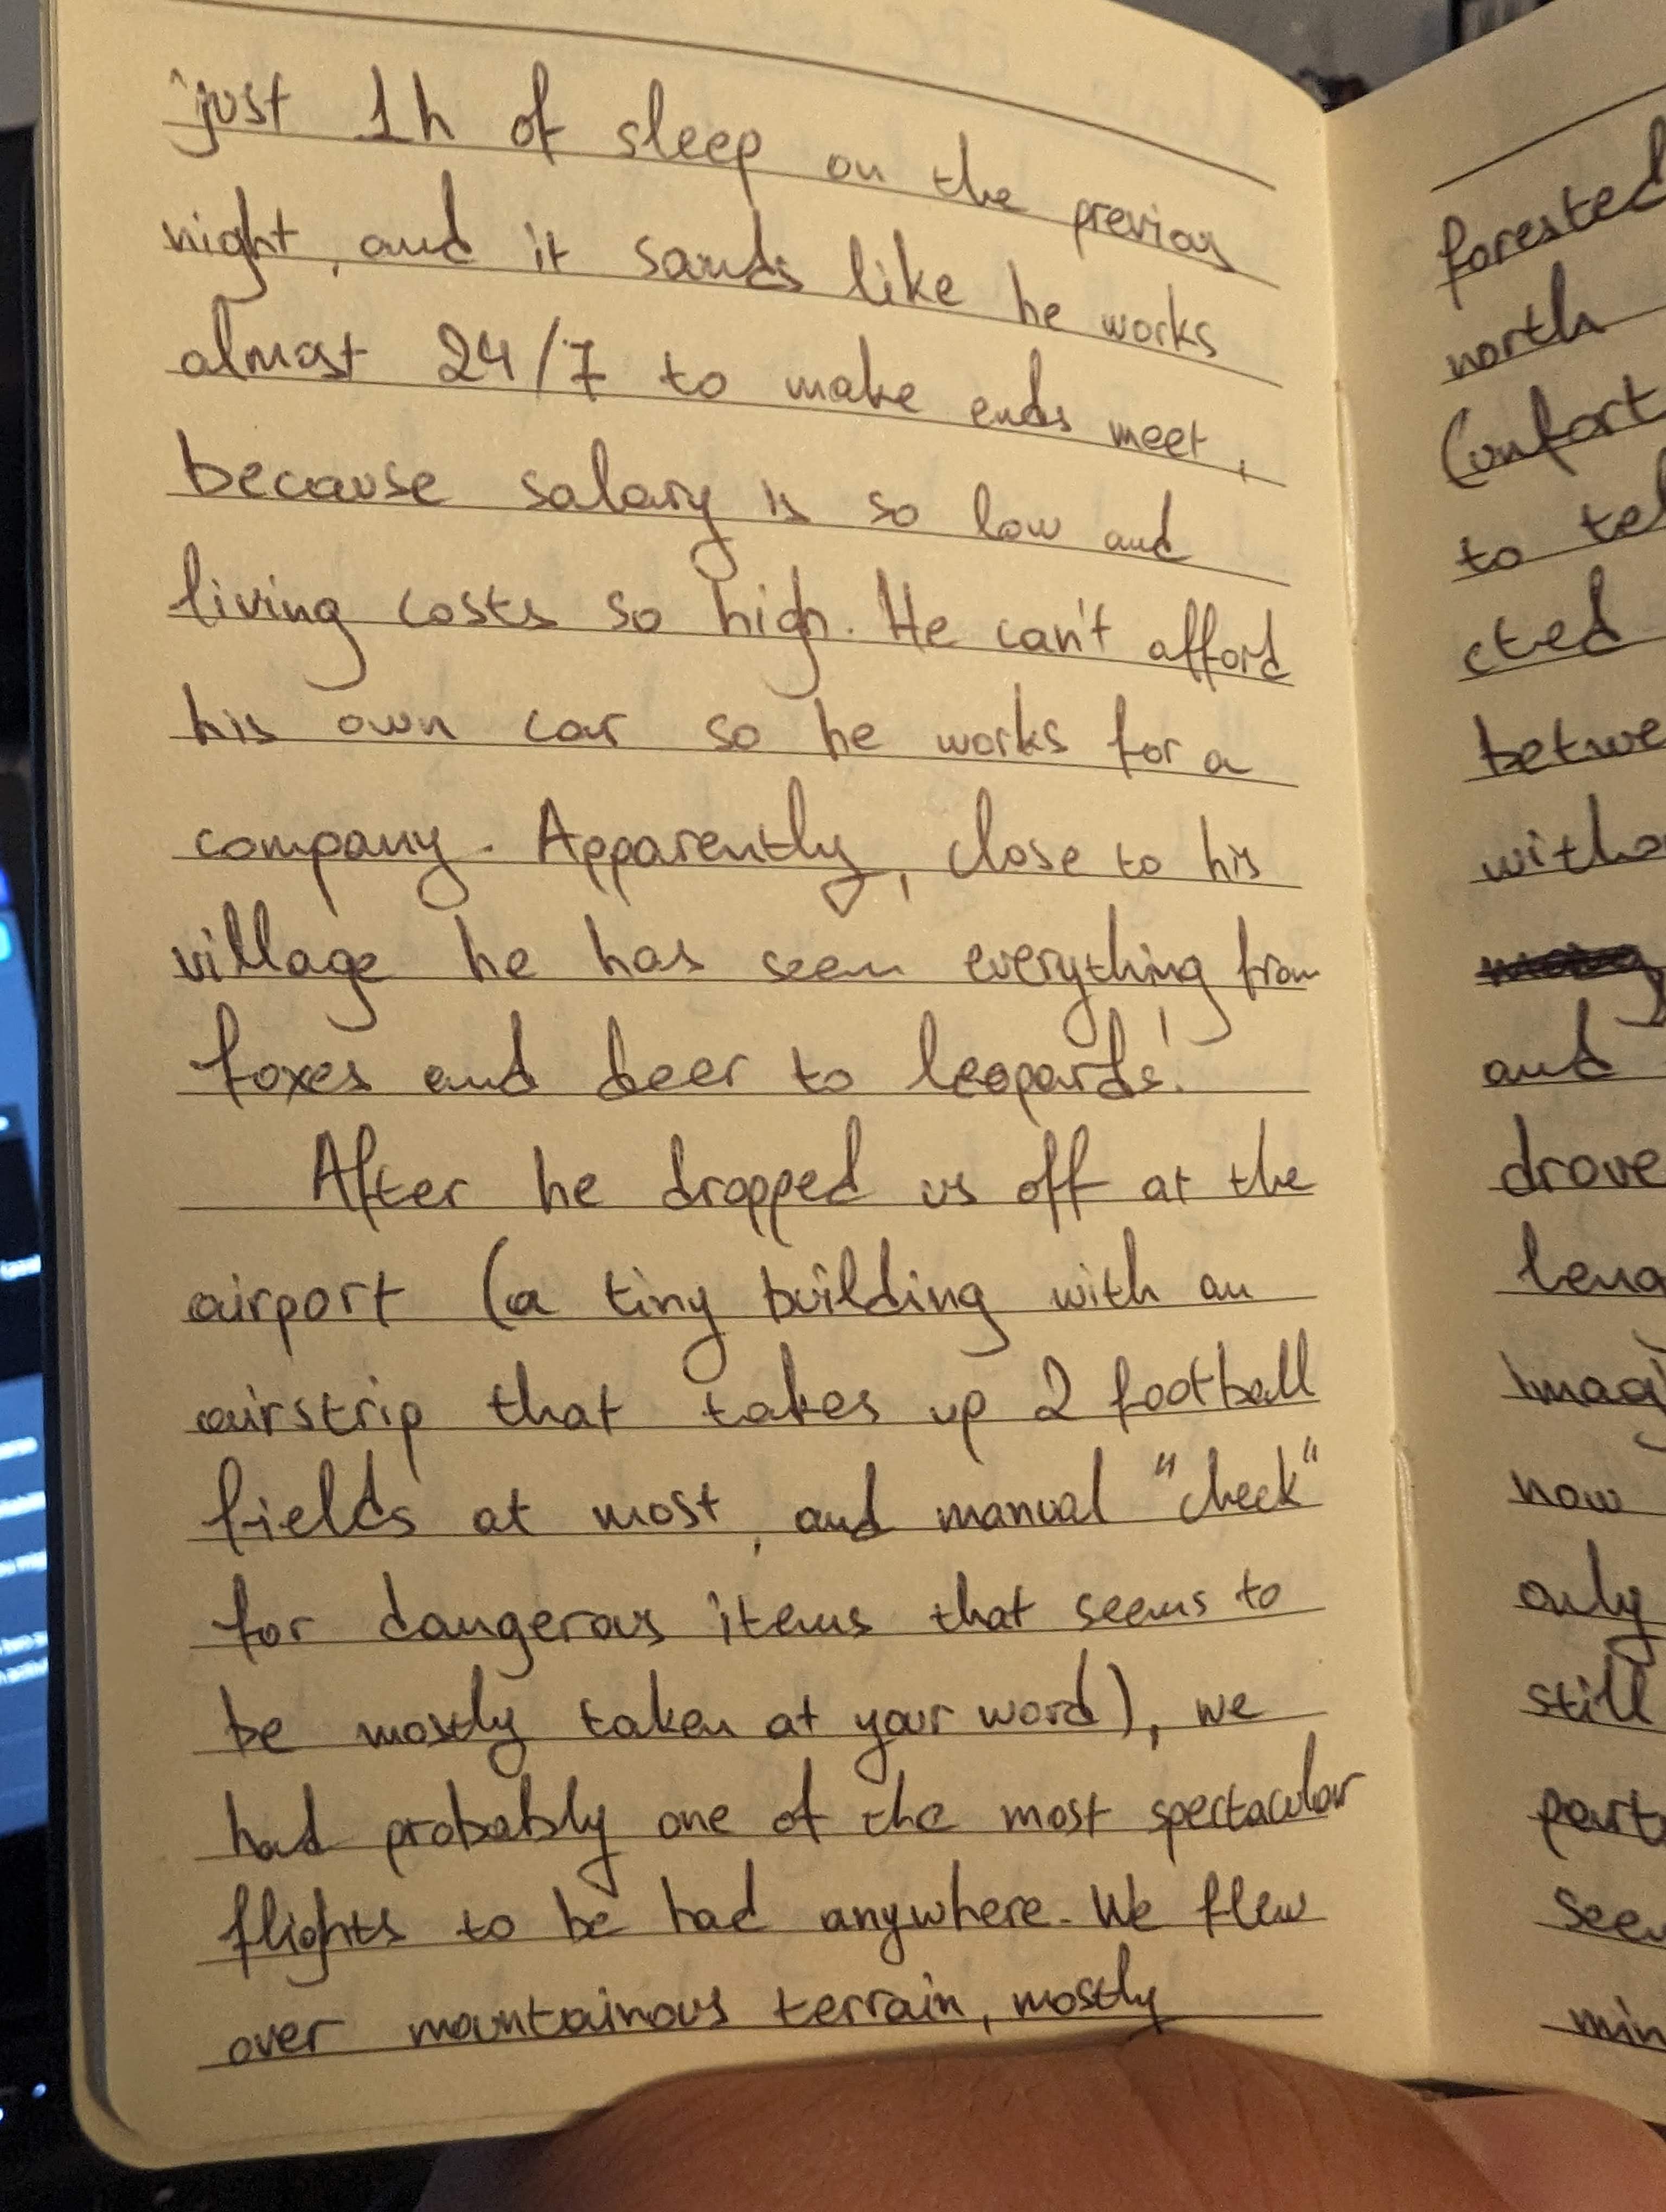 just 1h of sleep on the previous
night, and it sounds like he works
almost 24/7 to make ends meet,
because salary is so low and
living costs so high. He can't afford
his own car so he works for a
company. Apparently, close to his
village he has seen everything from
foxes and deer to leopards!
After he dropped us off at the
airport (a tiny building with an
airstrip that takes up 2 football
fields at most, and manual "check"
for dangerous items that seems to
be mostly taken at your word), we
had probably one of the most spectacular
flights to be had anywhere. We flew
over mountainous terrain, mostly
forested
north
(onfort
to tel
cted
betwe
witho
and
drove
leng
imag
now
only
still
part
seen
min